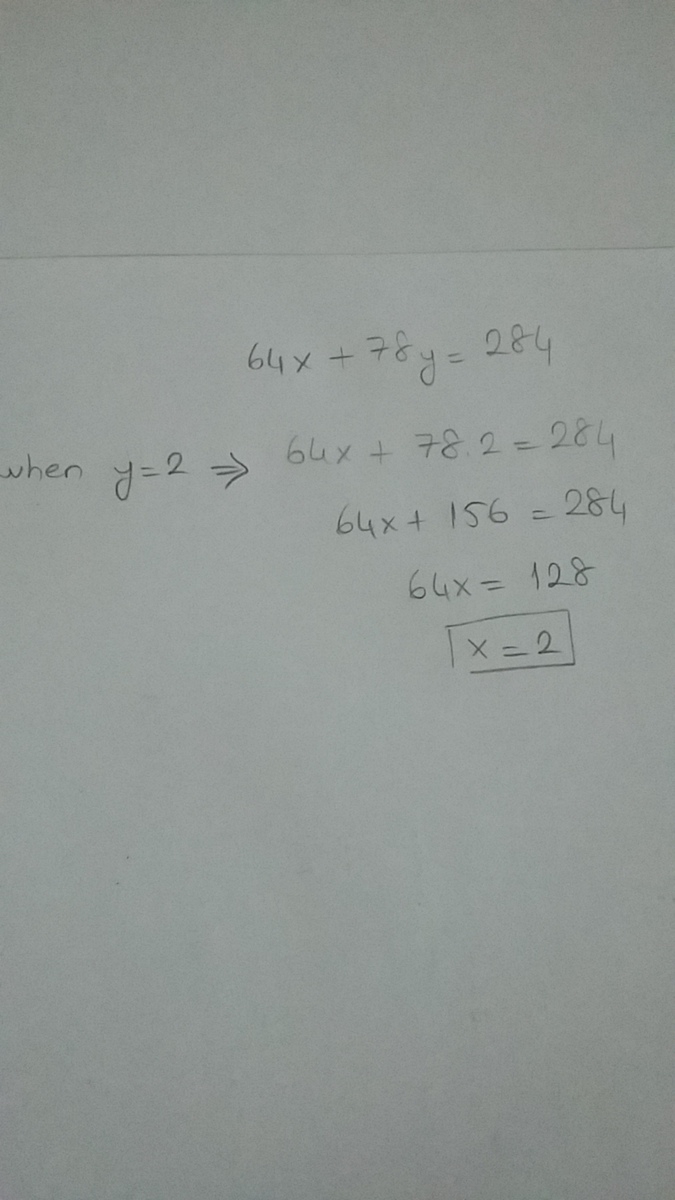 64x + 78y = 284
when y=2 ⇒ 64x + 78.2 = 284
64x + 156 = 284
64x = 128
x = 2